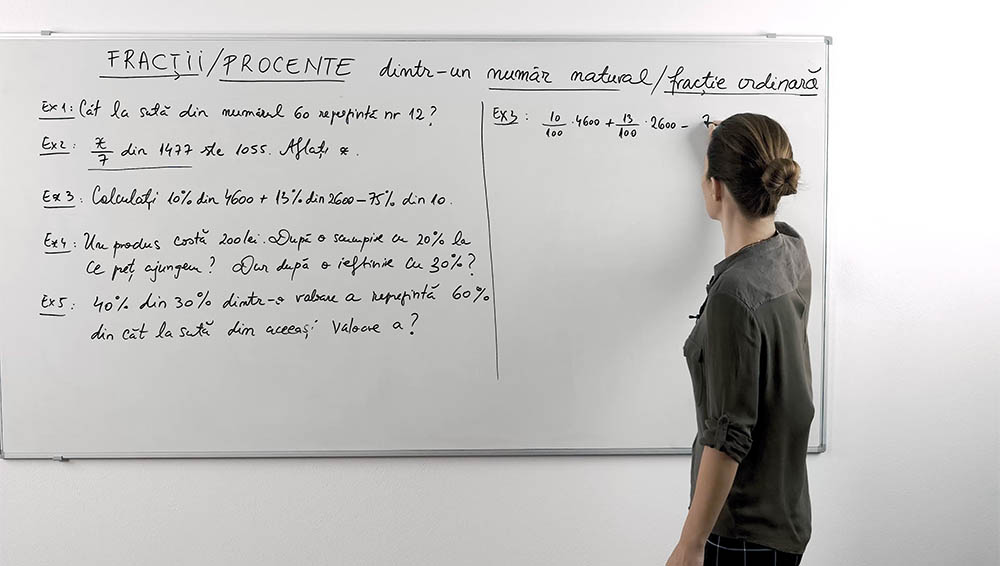 FRACȚII/PROCENTE dintr-un număr natural/fracție ordinară
Ex1: Cât la sută din numărul 60 reprezintă nr 12?
Ex2: x/7 din 1477 este 1055. Aflați x.
Ex3: Calculați 10% din 4600 + 13% din 2600 – 75% din 10.
Ex4: Un produs costă 200 lei. După o scumpire cu 20% la
ce preț ajungem? Dar după o ieftinire cu 30%?
Ex5: 40% din 30% dintr-o valoare a reprezintă 60%
din cât la sută din aceeași valoare a?
Ex3: 10/100 · 4600 + 13/100 · 2600 – 7